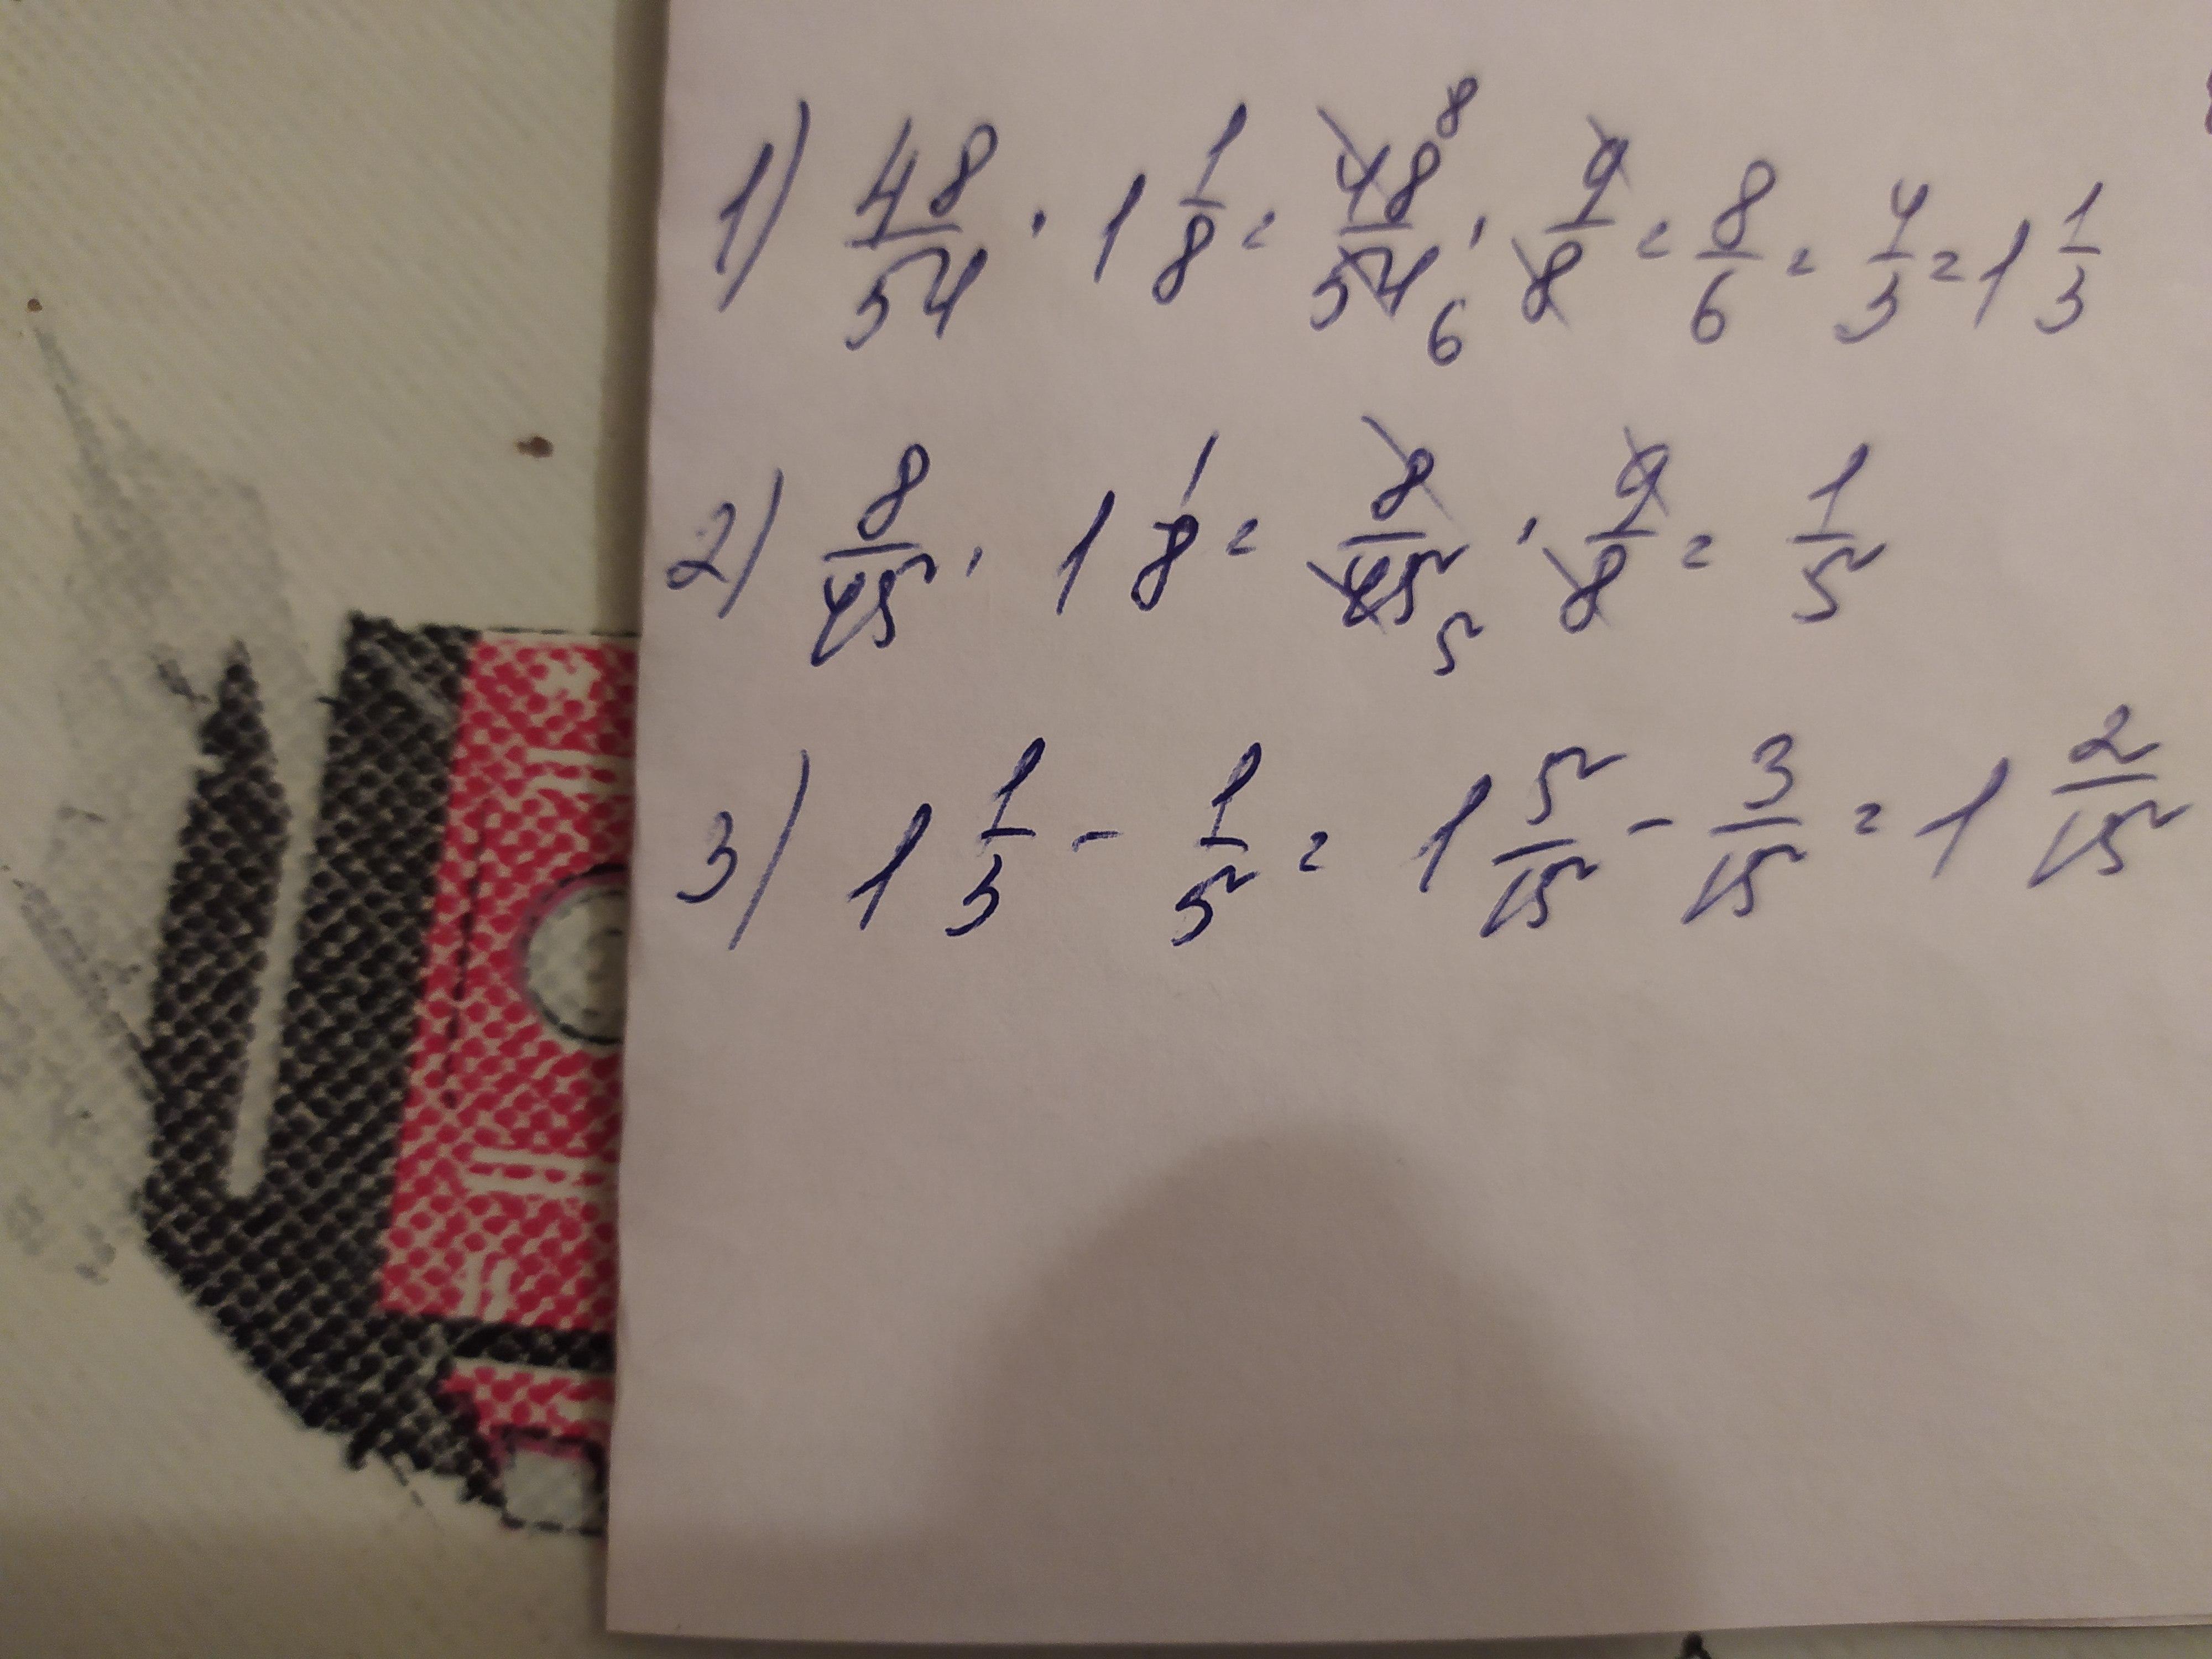 1) 48/54 · 1 1/8 = 48 8/54 6 · 9/8 = 8/6 = 4/3 = 1 1/3
2) 8/45 · 1 1/8 = 8/45 5 · 9/8 = 1/5
3) 1 1/3 - 1/5 = 1 5/15 - 3/15 = 1 2/15